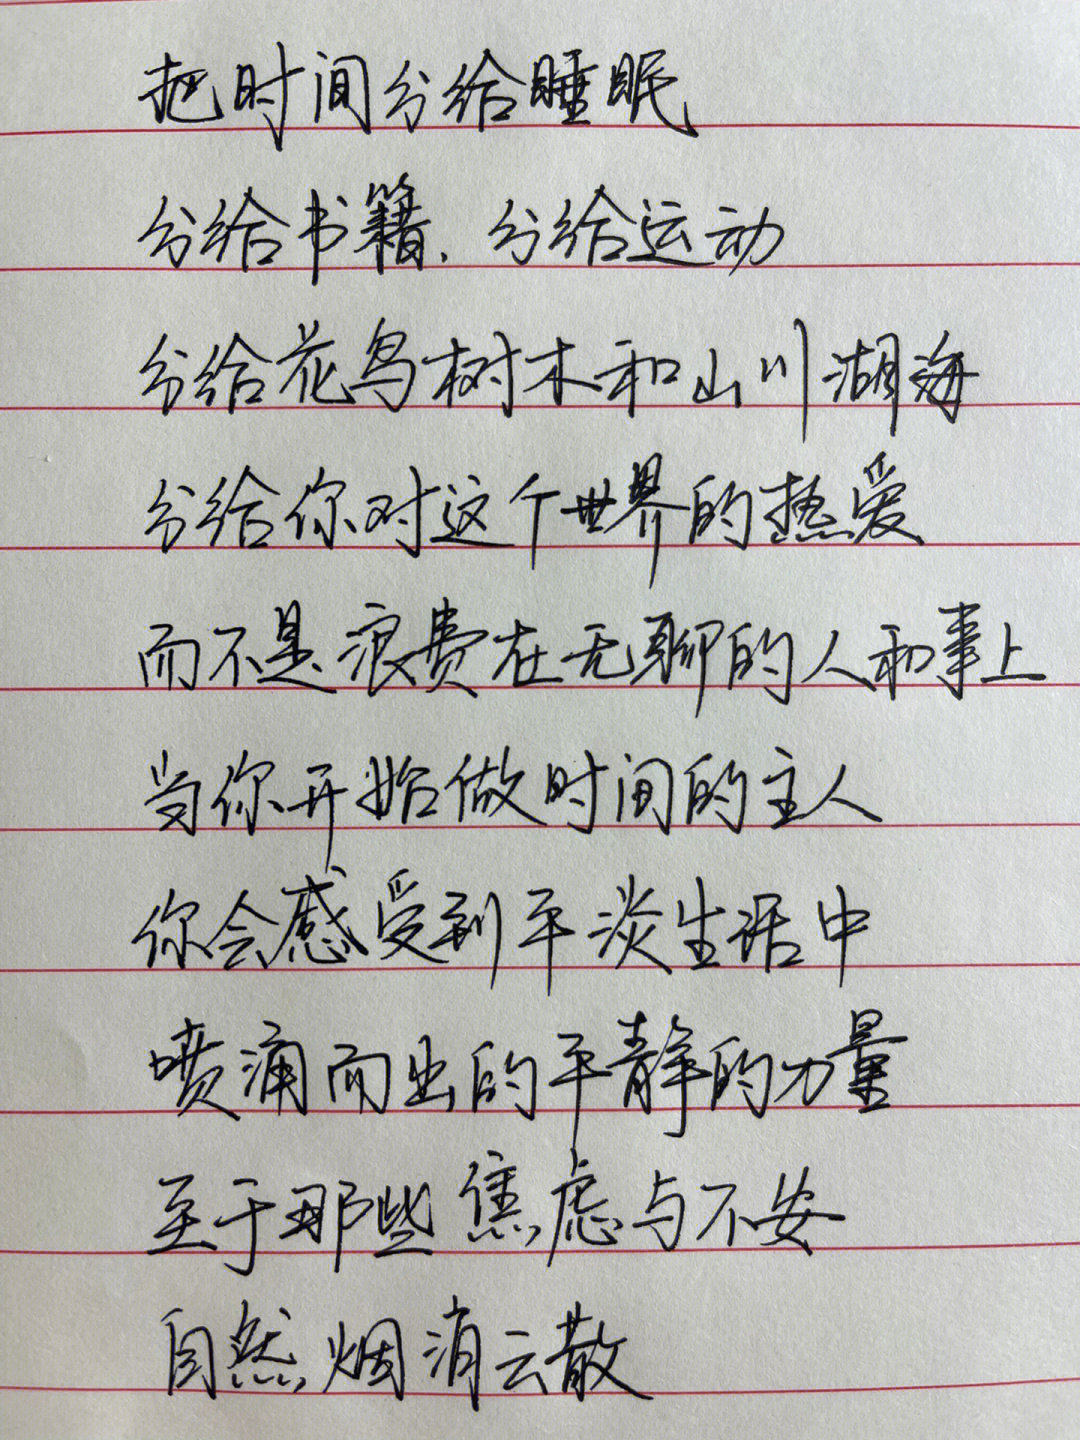 把时间分给睡眠
分给书籍，分给运动
分给花鸟树木和山川湖海
分给你对这个世界的热爱
而不是浪费在无聊的人和事上
当你开始做时间的主人
你会感受到平淡生活中
喷涌而出的平静的力量
至于那些焦虑与不安
自然烟消云散